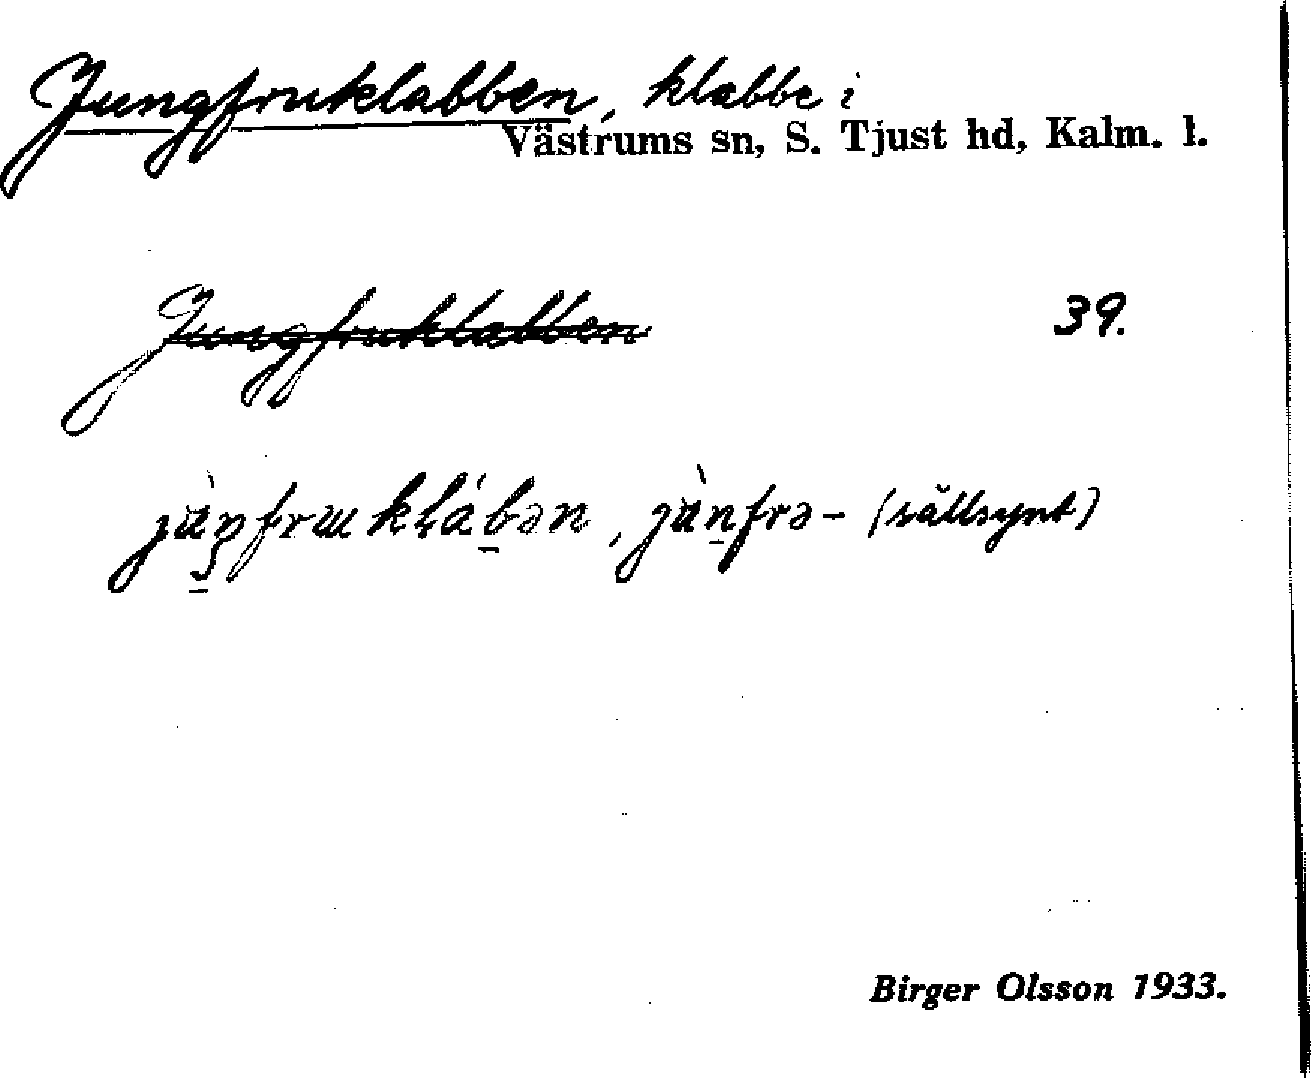 Jungfruklabben, klabbe i
Västrums sn, S. Tjust hd, Kalm. l.
Jungfruklabben 39.
jùŋfrɯklábən, jùnfrə- (sällsynt)
Birger Olsson 1933.